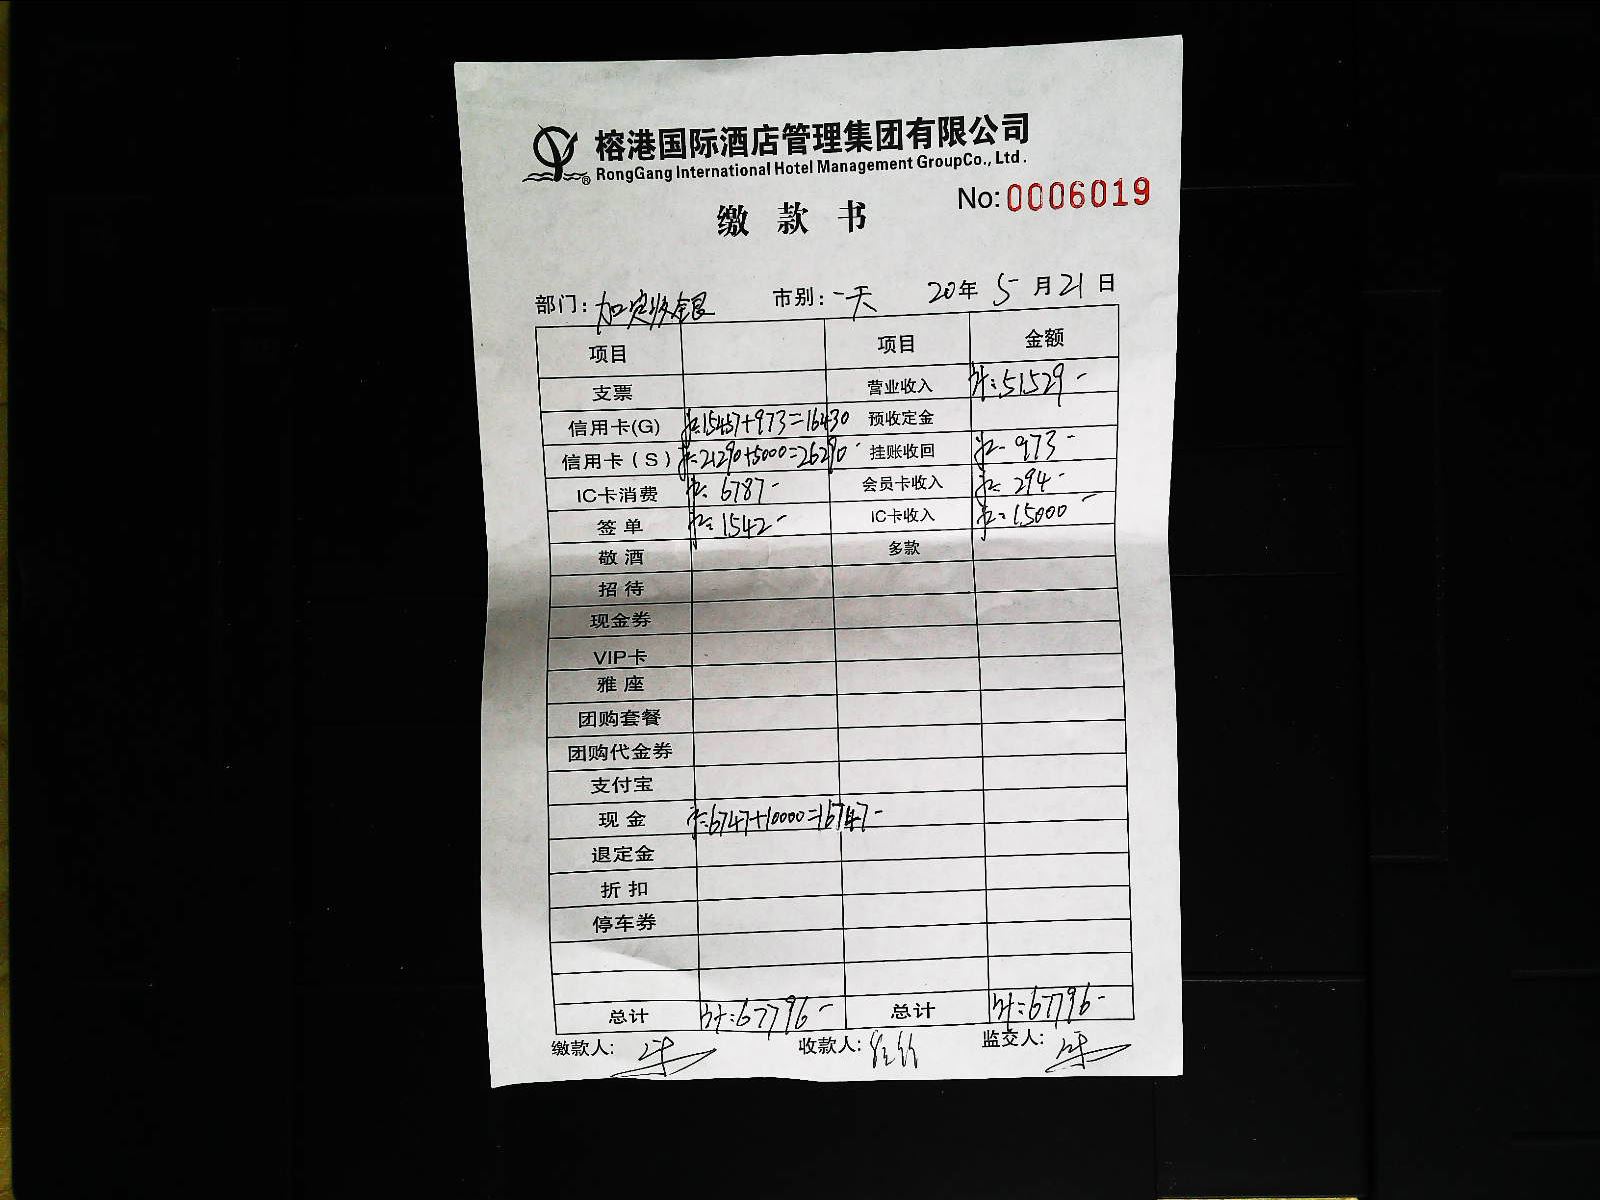 榕港国际酒店管理集团有限公司
RongGang International Hotel Management GroupCo., Ltd.
No: 0006019
缴款书
部门: 加定收银 市别: 一天 20年 5月21日
项目 项目 金额
支票 营业收入 计:51529-
信用卡(G) 15457+973=16430 预收定金
信用卡(S) 21290+5000=26290- 挂账收回 973-
IC卡消费 6787- 会员卡收入 294-
签单 1542- IC卡收入 15000-
敬酒 多款
招待
现金券
VIP卡
雅座
团购套餐
团购代金券
支付宝
现金 6747+10000=16747-
退定金
折扣
停车券
总计 计:67796- 总计 计:67796-
缴款人: 收款人: 监交人: